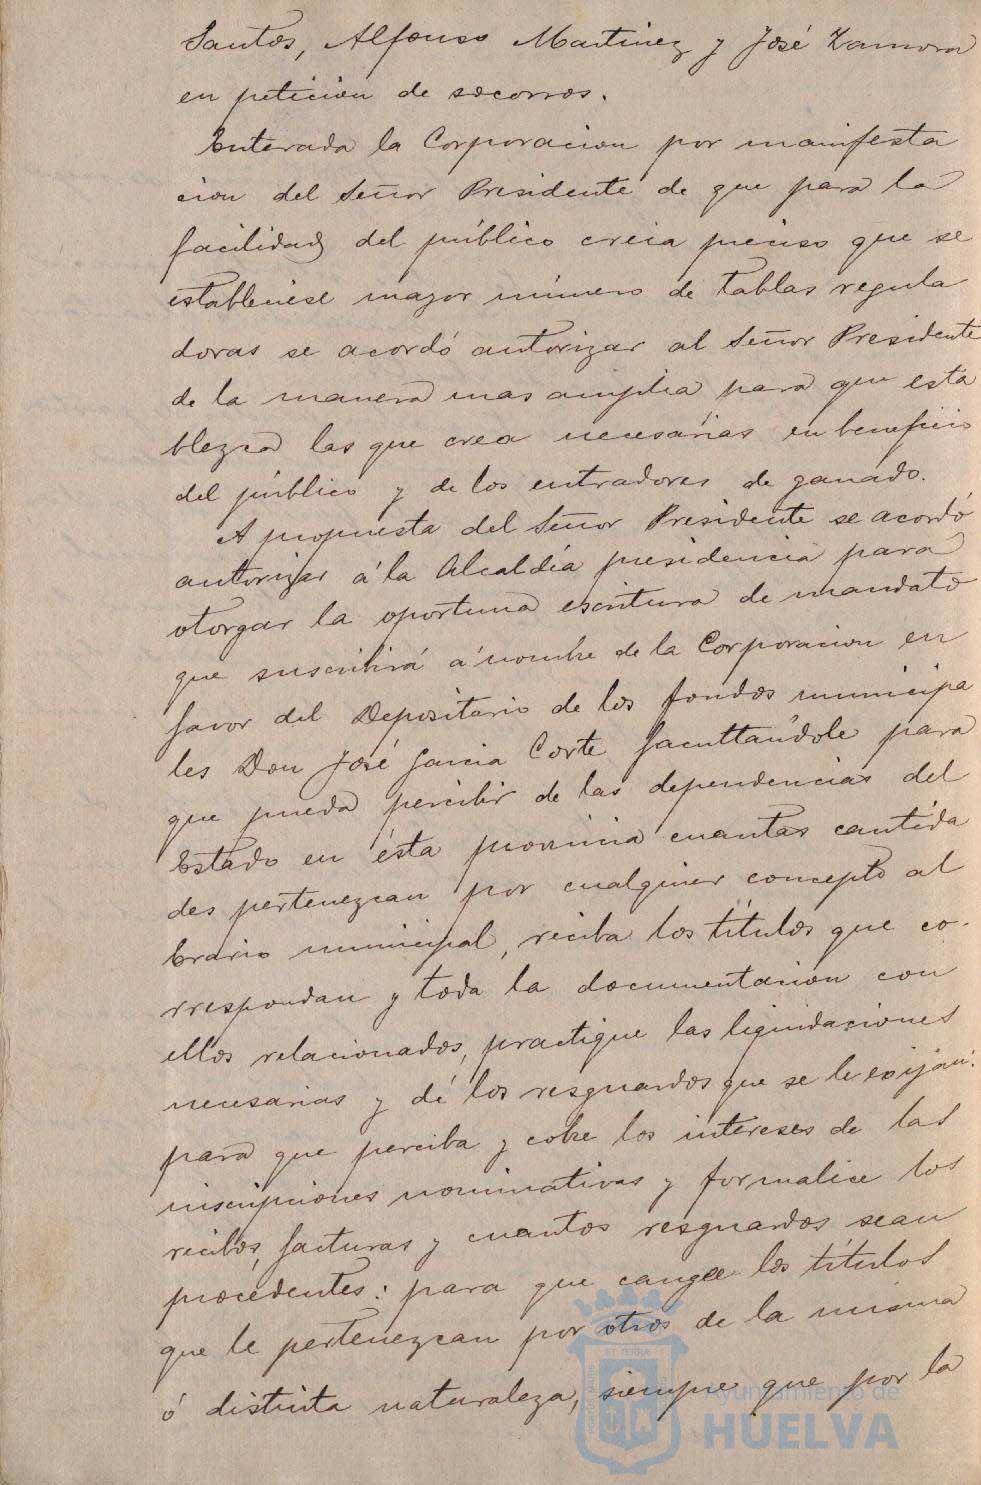 Santos, Alfonso Martinez y José Zamora
en peticion de socorros.
Enterada la Corporacion por manifesta
cion del Señor Presidente de que para la
facilidad del público creia preciso que se
estableciese mayor número de tablas regula
doras se acordó autorizar al Señor Presidente
de la manera mas amplia para que esta
blezca las que crea necesarias en beneficio
del público y de los entradores de ganado.
A propuesta del Señor Presidente se acordó
autorizar á la Alcaldía presidencia para
otorgar la oportuna escritura de mandato
que suscribirá á nombre de la Corporacion en
favor del Depositario de los fondos municipa
les Don José Garcia Corte facultándole para
que pueda percibir de las dependencias del
Estado en ésta provincia cuantas cantida
des pertenezcan por cualquier concepto al
Erario municipal, reciba los títulos que co-
rrespondan y toda la documentacion con
ellos relacionados, practique las liquidaciones
necesarias y dé los resguardos que se le exijan:
para que perciba y cobre los intereses de las
inscripciones nominativas y formalice los
recibos, facturas y cuantos resguardos sean
procedentes: para que cangee los títulos
que le pertenezcan por otros de la misma
ó distinta naturaleza, siempre que por la
Ayuntamiento de
HUELVA